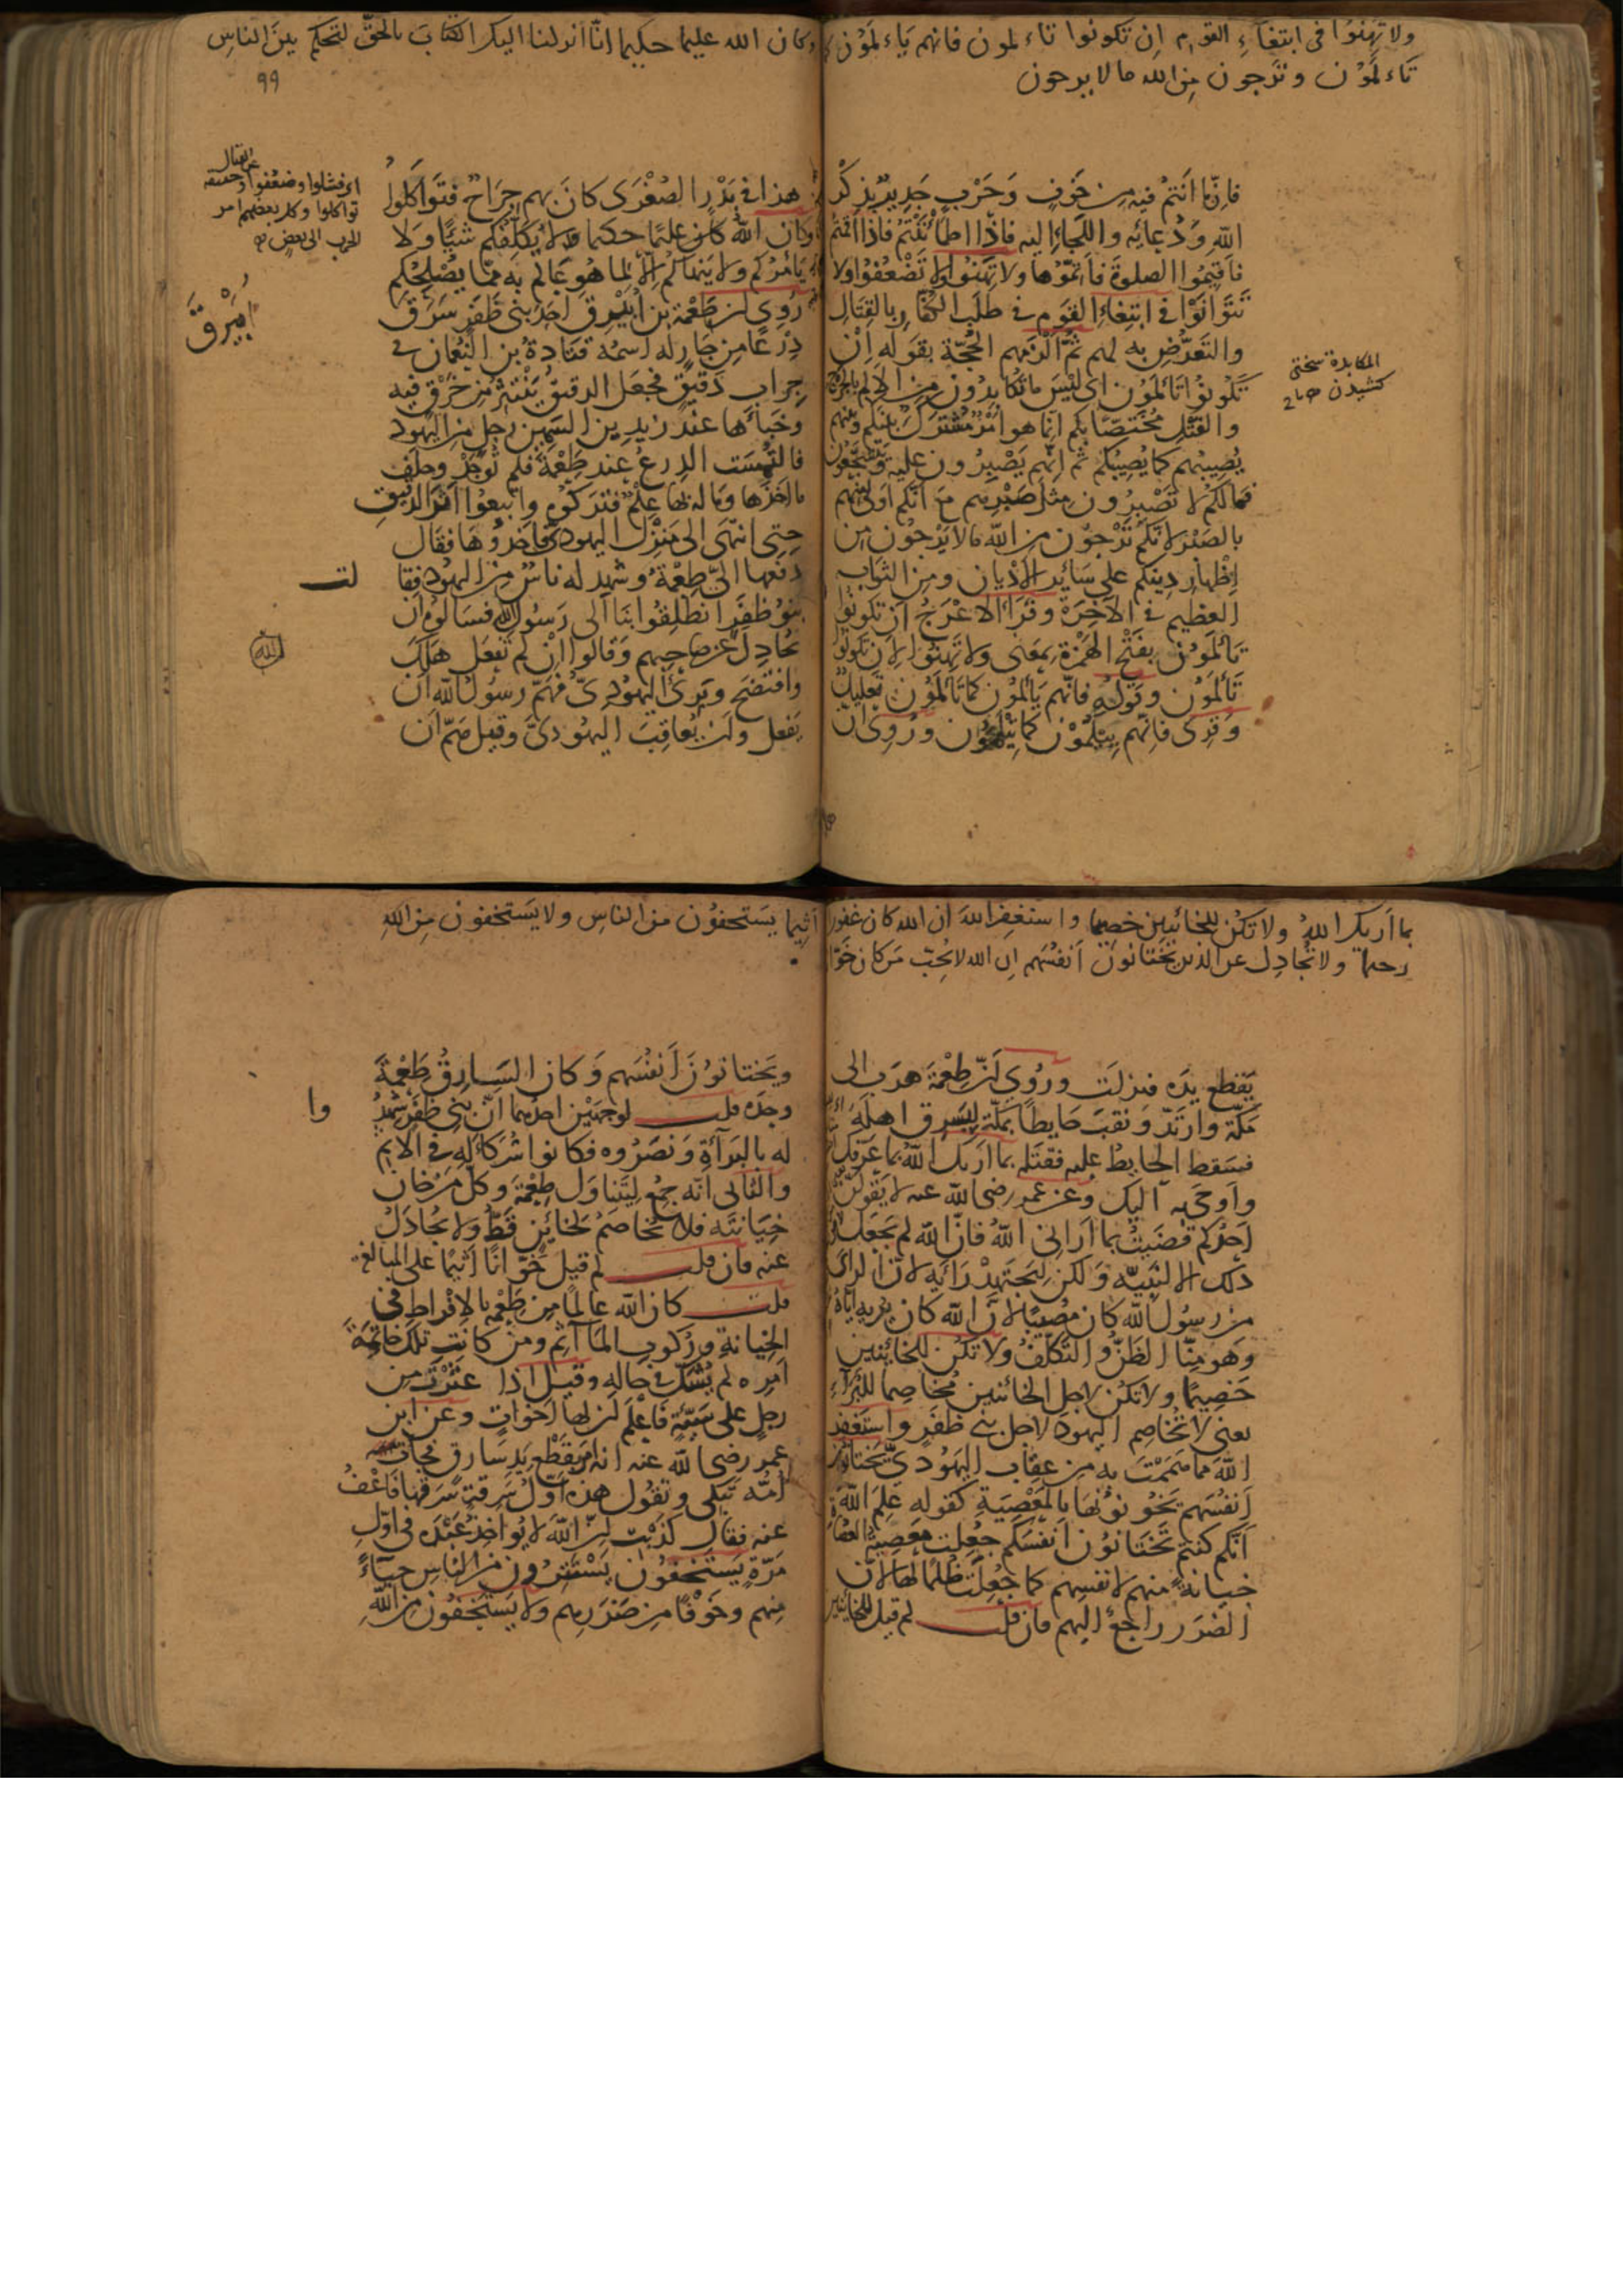 ولا تهنوا فى ابتغاء القوم ان تكونوا تاء لمون فانهم ياء لمون كما
تاء لمون وترجون من الله ما لا يرجون
فانّما انتم فيه من خوف وحرب جدير بذكر
الله ودعائه واللّجاء اليه فاذا اطمأننتم فاذا اقمتم
فاقيموا الصلوة فاتمّوها ولا تهنوا ولا تضعفوا ولا
تتوانوا فى ابتغاء القوم فى طلب الكفّار بالقتال
والتعرّض به لهم ثمّ الزمهم الحجّة بقوله ان
تكونوا تالمون اى ليس ما تكابدون من الالم بالجرح
والقتل مختصّا بكم انما هو امر مشترك بينكم وبينهم
يصيبهم كما يصيبكم ثم انّهم يصبرون عليه ويتشجّعون
فمالكم لا تصبرون مثل صبرهم مع انّكم اولى منهم
بالصبر لانّكم ترجون من الله ما لا يرجون من
اظهار دينكم على سائر الاديان ومن الثواب
العظيم فى الآخرة وقرأ الاعرج ان تكونوا
تألمون بفتح الهمزة بمعنى ولا تهنوا لان تكونوا
تألمون وقوله فانّهم يألمون كما تألمون تعليل
وقرى فانّهم ييلمون كما تيلمون وروى ان
المكابدة سختى
كشيدن
وكان الله عليما حكيما انّا انزلنا اليك الكتاب بالحقّ لتحكم بين الناس
٩٩
هذا فى بدر الصغرى كان بهم جراح فتواكلوا
وكان الله عليما حكيما ولا يكلّفكم شيأ ولا
يأمركم ولا ينهاكم الّا لما هو عالم به ممّا يصلحكم
روى ان طعمة بن ابيرق احد بنى ظفر سرق
درعا من جار له اسمه قتادة بن النعمان فى
جراب دقيق فجعل الدقيق ينتثر من خرق فيه
وخبأها عند زيد بن السمين رجل من اليهود
فالتمست الدرع عند طعمة فلم توجد وحلف
ما اخذها وما له بها علم فتركوه واتبعوا اثر الدقيق
حتى انتهى الى منزل اليهودىّ فاخذوها فقال
دفعها الىّ طعمة وشهد له ناس من اليهود فقا
لت
بنو ظفر انطلقوا بنا الى رسول الله فسألوه ان
يجادل عن صاحبهم وقالوا ان لم تفعل هلك
وافتضح وبرئ اليهودىّ فهمّ رسول الله ان
يفعل وان يعاقب اليهودىّ وقيل همّ ان
عن القتال
اى فشلوا وضعفوا
تواكلوا وكل بعضهم امر
الحرب الى بعض
ابيرق
الله
بما اريك الله ولا تكن للخائنين خصيما واستغفر الله ان الله كان غفورا
رحيما ولا تجادل عن الذين يختانون انفسهم ان الله لا يحبّ من كان خوّا
يقطع يده فنزلت وروى انّ طعمة هرب الى
مكّة وارتدّ ونقب حايطا بمكّة ليسرق اهله
فسقط الحايط عليه فقتله بما اريك الله بما عرّفك
واوحى به اليك وعن عمر رضى الله عنه لا يقولنّ
احدكم قضيت بما ارانى الله فانّ الله لم يجعل
ذلك الا لنبيّه ولكن ليجتهد رأيه لانّ الراى
من رسول الله كان مصيبا لانّ الله كان يريه ايّاه
وهو منّا الظنّ والتكلّف ولا تكن للخائنين
خصيما ولا تكن لاجل الخائنين مخاصما للبرآء
يعنى لا تخاصم اليهود لاجل بنى ظفر واستغفر
الله مما هممت به من عقاب اليهودىّ يختانون
انفسهم يخونونها بالمعصية كقوله علم الله
انّكم كنتم تختانون انفسكم جعلت معصية العصاة
خيانة منهم لانفسهم كما جعلت ظلما لها لانّ
الضرر راجع اليهم فان قلت لم قيل للخائنين
اثيما يستخفون من الناس ولا يستخفون من الله
ويختانون انفسهم وكان السارق طعمة
وحده قلت لوجهين احدهما انّ بنى ظفر شهد
وا
له بالبرآة ونصروه فكانوا شركاء له فى الاثم
والثانى انّه جمع ليتناول طعمة وكلّ من خان
خيانته فلا تخاصم لخائن قطّ ولا تجادل
عنه فان قلت لم قيل خوّانا اثيما على المبالغة
قلت كان الله عالما من طعمة بالافراط فى
الخيانة وركوب المآثم ومن كانت تلك خاتمة
امره لم يشكّ فى حاله وقيل اذا عثرت من
رجل على سيّئة فاعلم انّ لها اخوات وعن ابن
عمر رضى الله عنه انه امر بقطع يد سارق فجاءت
امّه تبكى وتقول هذه اوّل سرقة سرقها فاعف
عنه فقال كذبت انّ الله لا يؤاخذ عبده فى اوّل
مرّة يستخفون يستترون من الناس حياء
منهم وخوفا من ضررهم ولا يستخفون من الله